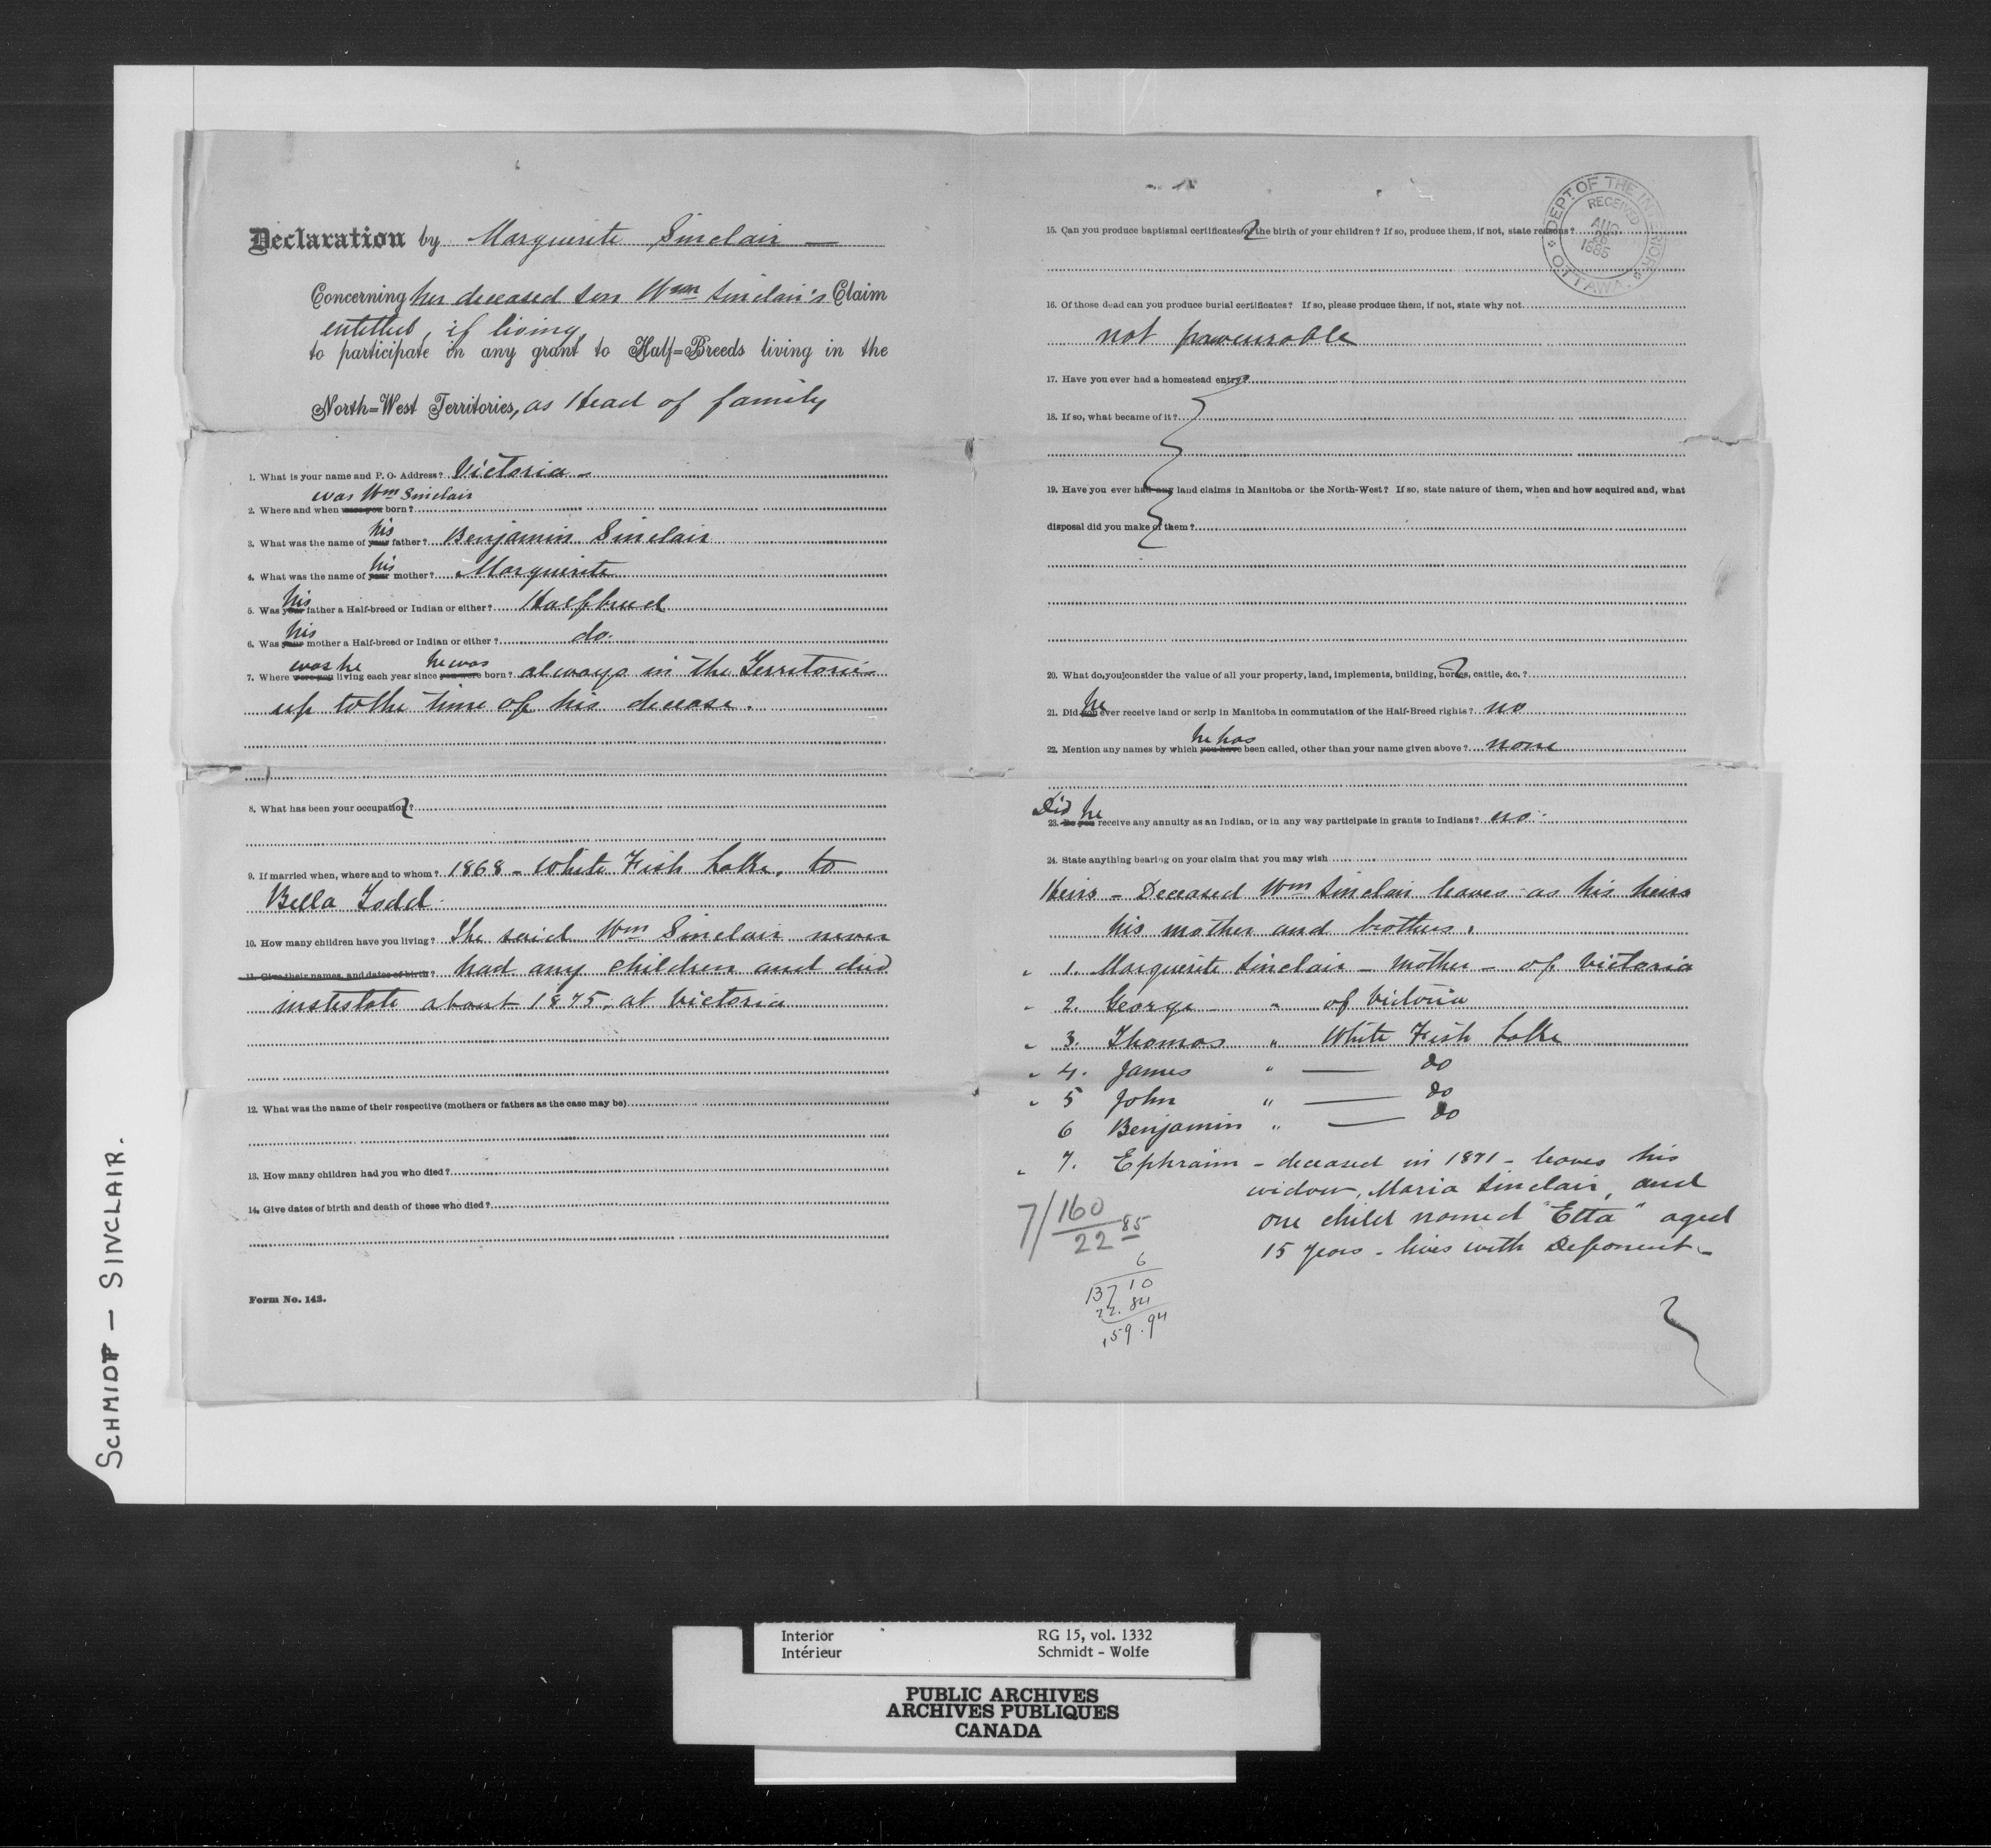 Declaration by Marguerite Sinclair —
Concerning her deceased son Wm Sinclair's Claim
entitled, if living,
to participate in any grant to Half=Breeds living in the
North=West Territories, as Head of family
1. What is your name and P. O. Address? Victoria -
was Wm Sinclair
2. Where and when were you born?
his
3. What was the name of your father? Benjamin Sinclair
his
4. What was the name of your mother? Marguerite
his
5. Was your father a Half-breed or Indian or either? Halfbreed
his
6. Was your mother a Half-breed or Indian or either? do.
was he he was
7. Where were you living each year since you were born? always in the Territories
up to the time of his decease.
8. What has been your occupation?
9. If married when, where and to whom? 1868 - White Fish Lake, to
Bella Todd.
10. How many children have you living? The said Wm Sinclair never
11. Give their names, and dates of birth? had any children and died
instestate about 1875, at Victoria
12. What was the name of their respective (mothers or fathers as the case may be)
13. How many children had you who died?
14. Give dates of birth and death of those who died?
Form No. 143.
15. Can you produce baptismal certificates of the birth of your children? If so, produce them, if not, state reasons?
16. Of those dead can you produce burial certificates? If so, please produce them, if not, state why not
not procurable
17. Have you ever had a homestead entry?
18. If so, what became of it?
19. Have you ever had any land claims in Manitoba or the North-West? If so, state nature of them, when and how acquired and, what
disposal did you make of them?
20. What do you consider the value of all your property, land, implements, building, horses, cattle, &c.?
he
21. Did you ever receive land or scrip in Manitoba in commutation of the Half-Breed rights? no
he has
22. Mention any names by which you have been called, other than your name given above? none
Did he
23. Do you receive any annuity as an Indian, or in any way participate in grants to Indians? no.
24. State anything bearing on your claim that you may wish
Heirs - Deceased Wm Sinclair leaves as his heirs
his mother and brothers.
1. Marguerite Sinclair - Mother - of Victoria
2. George " of Victoria
3. Thomas " White Fish Lake
4. James " — do
5 John " — do
6 Benjamin " — do
7. Ephraim - deceased in 1871 - leaves his
widow, Maria Sinclair, and
one child named "Etta" aged
15 years - lives with Deponent -
7/160
22 85
6
137 10
22.84
159.94
DEPT. OF THE INTERIOR
RECEIVED
AUG
26
1885
OTTAWA.
SCHMIDT — SINCLAIR.
Interior RG 15, vol. 1332
Intérieur Schmidt - Wolfe
PUBLIC ARCHIVES
ARCHIVES PUBLIQUES
CANADA